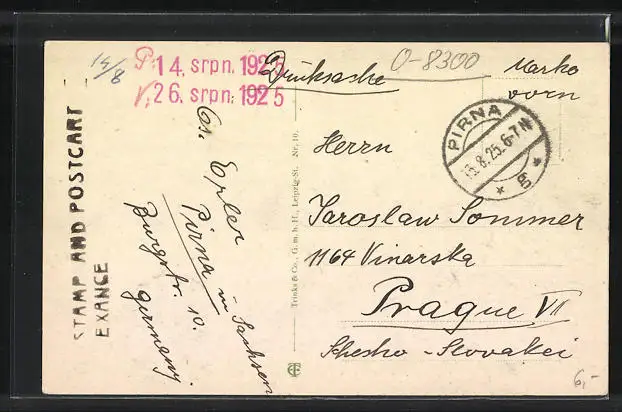 14/8
P. 14. srpn. 1925
V. 26. srpn. 1925
Drucksache
0-8300
Marke
vorn
PIRNA
13.8.25.6-7N
* g *
STAMP AND POSTCART
EXANGE
Gs. Epler
Pirna in Sachsen
Burgstr. 10.
Germany.
Trinks & Co., G. m. b. H., Leipzig-St. Nr. 10.
Herrn
Jaroslaw Sommer
1164 Vinarska
Prague VII
Schesko-Slovakei
6,-